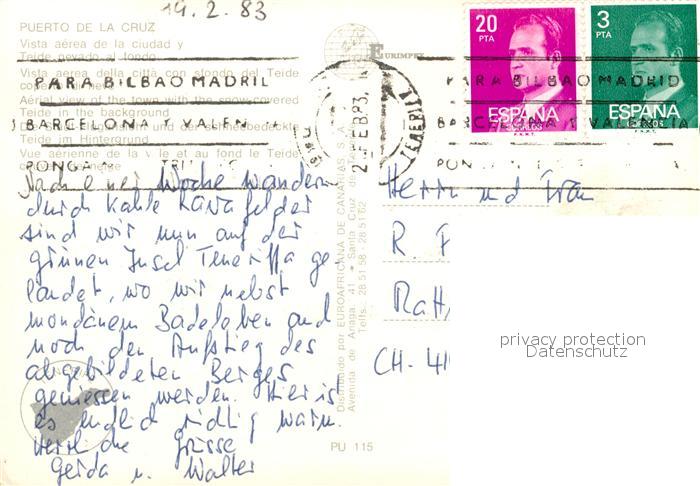 19.2.83
PUERTO DE LA CRUZ
Vista aérea de la ciudad y
Teide nevado al fondo
Vista aérea della città con sfondo del Teide
Aérial view of the town with the snow covered
Teide in the background
Teide im Hintergrund
Vue aérienne de la ville et au fond le Teide
EURIMPEX
PARA BILBAO MADRID
BARCELONA Y VALEN
PONGA
FEB 83
TENERIFE
20
PTA
ESPAÑA
3
PTA
ESPAÑA
PARA BILBAO MADRID
BARCELONA Y VALENCIA
PON
Nach einer Woche wandern
durch kahle Lavafelder
sind wir nun auf der
grünen Insel Teneriffa ge
landet, wo wir nebst
mondänem Badeleben auch
noch den Aufstieg des
abgebildeten Berges
geniessen werden. Hier ist
es endlich richtig warm.
Herzliche Grüsse
Gerda u. Walter
Distribuido por EUROAFRICANA DE CANARIAS, S.A.
Avenida de Anaga, 41 • Santa Cruz de
Telfs. 28 51 58 - 28 51 62
PU 115
Herrn und Frau
R. F
Matt
CH-41
privacy protection
Datenschutz